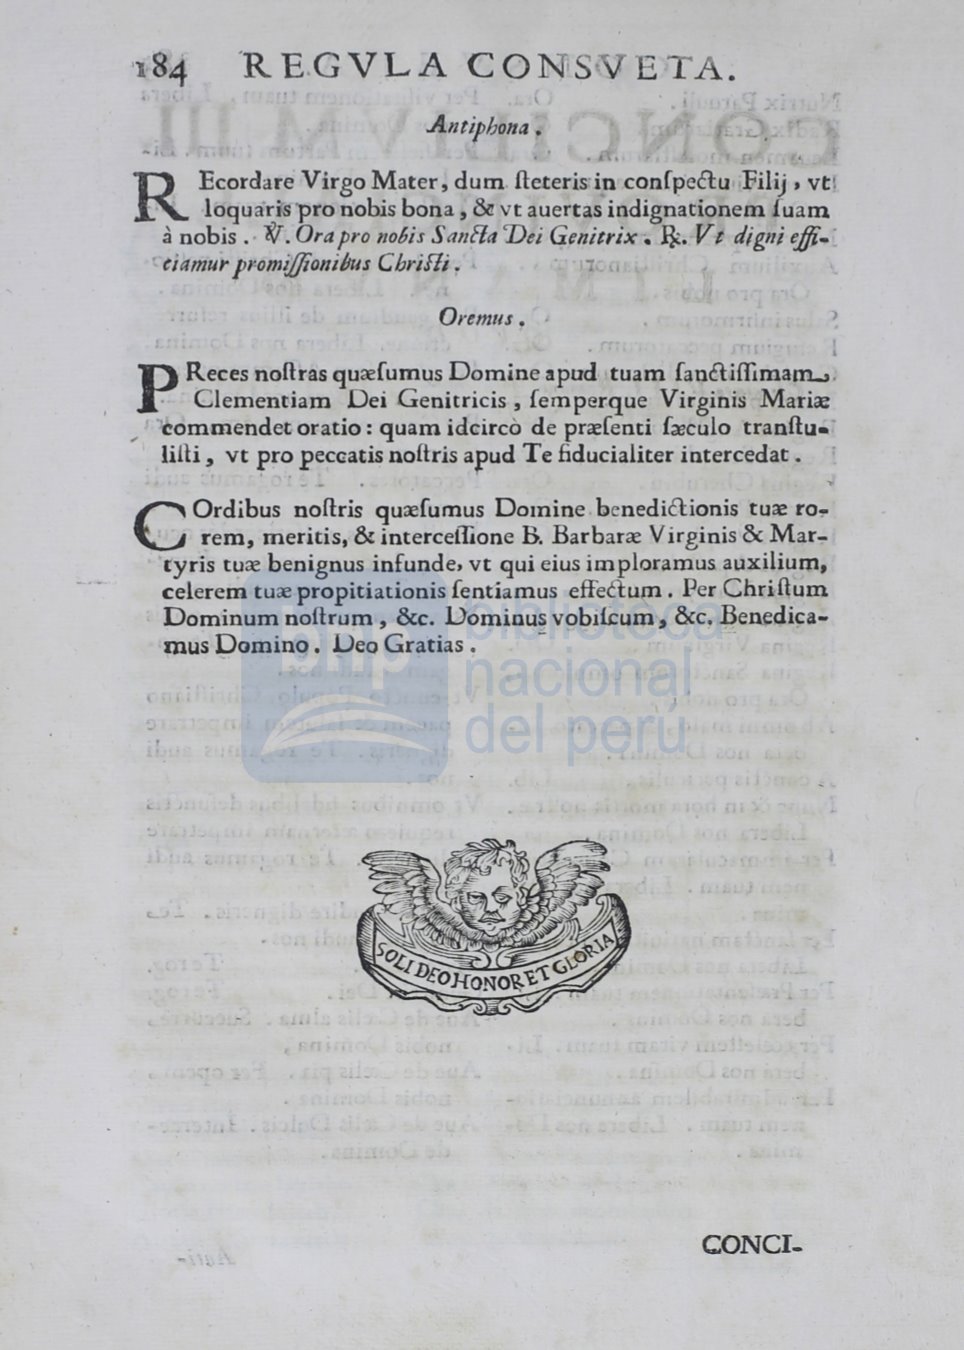 184 REGVLA CONSVETA.
Antiphona.
REcordare Virgo Mater, dum ſteteris in conſpectu Filij, vt
loquaris pro nobis bona, & vt auertas indignationem ſuam
à nobis. ℣. Ora pro nobis Sancta Dei Genitrix. ℟. Vt digni effi-
ciamur promiſſionibus Chriſti.
Oremus.
PReces noſtras quæſumus Domine apud tuam ſanctiſſimam,
Clementiam Dei Genitricis, ſemperque Virginis Mariæ
commendet oratio: quam idcircò de præſenti ſæculo tranſtu-
liſti, vt pro peccatis noſtris apud Te fiducialiter intercedat.
COrdibus noſtris quæſumus Domine benedictionis tuæ ro-
rem, meritis, & interceſſione B. Barbaræ Virginis & Mar-
tyris tuæ benignus infunde, vt qui eius imploramus auxilium,
celerem tuæ propitiationis ſentiamus effectum. Per Chriſtum
Dominum noſtrum, &c. Dominus vobiſcum, &c. Benedica-
mus Domino. Deo Gratias.
bnp
biblioteca
nacional
del perú
SOLI DEO HONOR ET GLORIA
CONCI-